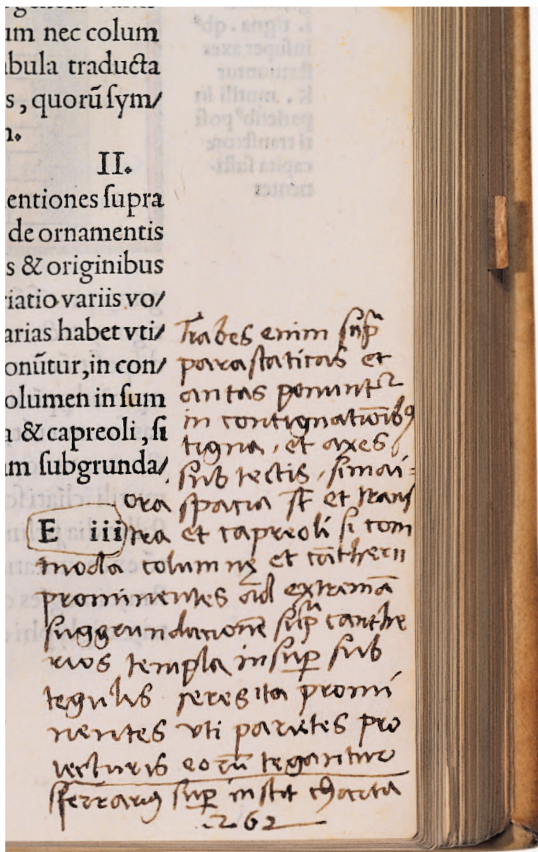 um nec colum
abula traducta
s, quorū ſym/
n.
II.
entiones ſupra
de ornamentis
s & originibus
riatio variis vo/
arias habet vti/
onūtur, in con/
olumen in ſum
a & capreoli, ſi
m ſubgrunda/
E iii
Trabes enim ſup̄
paraſtaticas et
antas ponuntr
in contignationibꝰ
tigna, et axes
sub tectis, ſi mai=
ora ſpacia ſt̄ et tranſ
tra et capreoli ſi com
moda columnę et cātherii
prominentes ad extremā
ſuggrundationē ſup̄ canthe
rios templa inſup̄ ſub
tegulis aſſeres ita promi
nentes vti parietes pro
iecturis eorū tegantur
ſup̄ inſtit charta
262